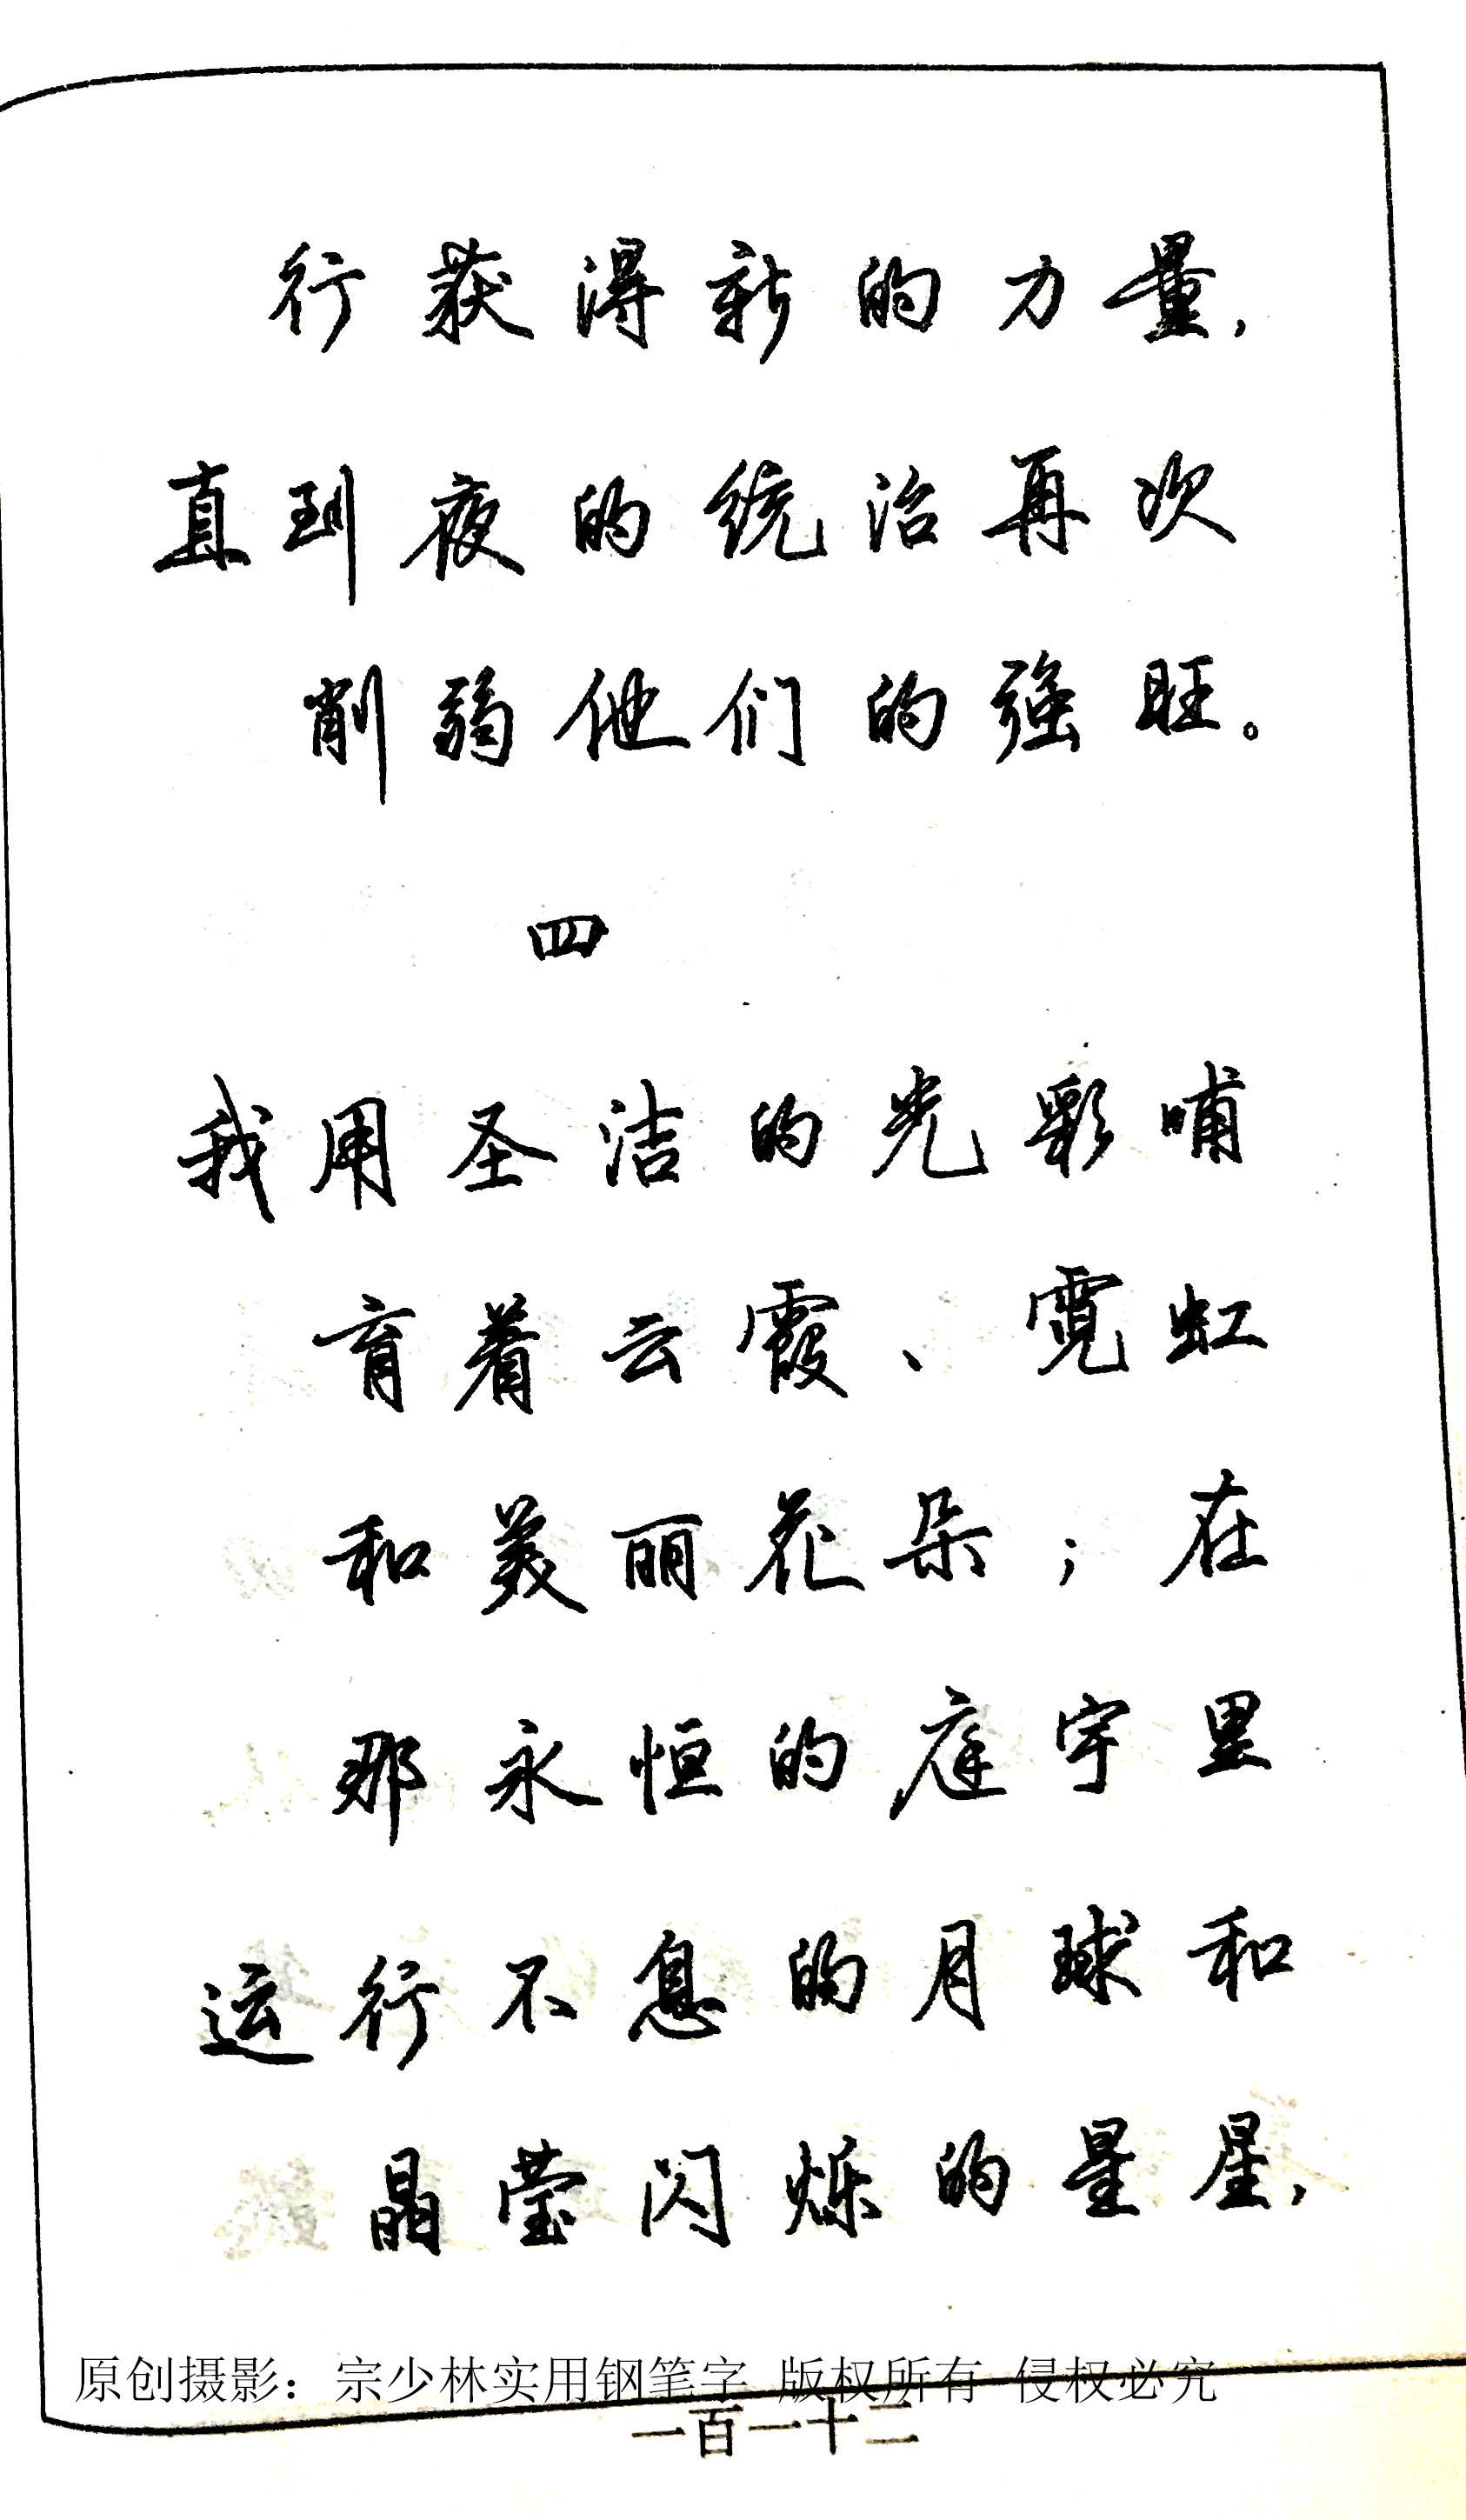 行获得新的力量，
直到夜的统治再次
削弱他们的强旺。
四
我用圣洁的光彩哺
育着云霞、霓虹
和美丽花朵；在
那永恒的庭宇里
运行不息的月球和
晶莹闪烁的星星，
原创摄影：宗少林实用钢笔字 版权所有 侵权必究
一百一十二